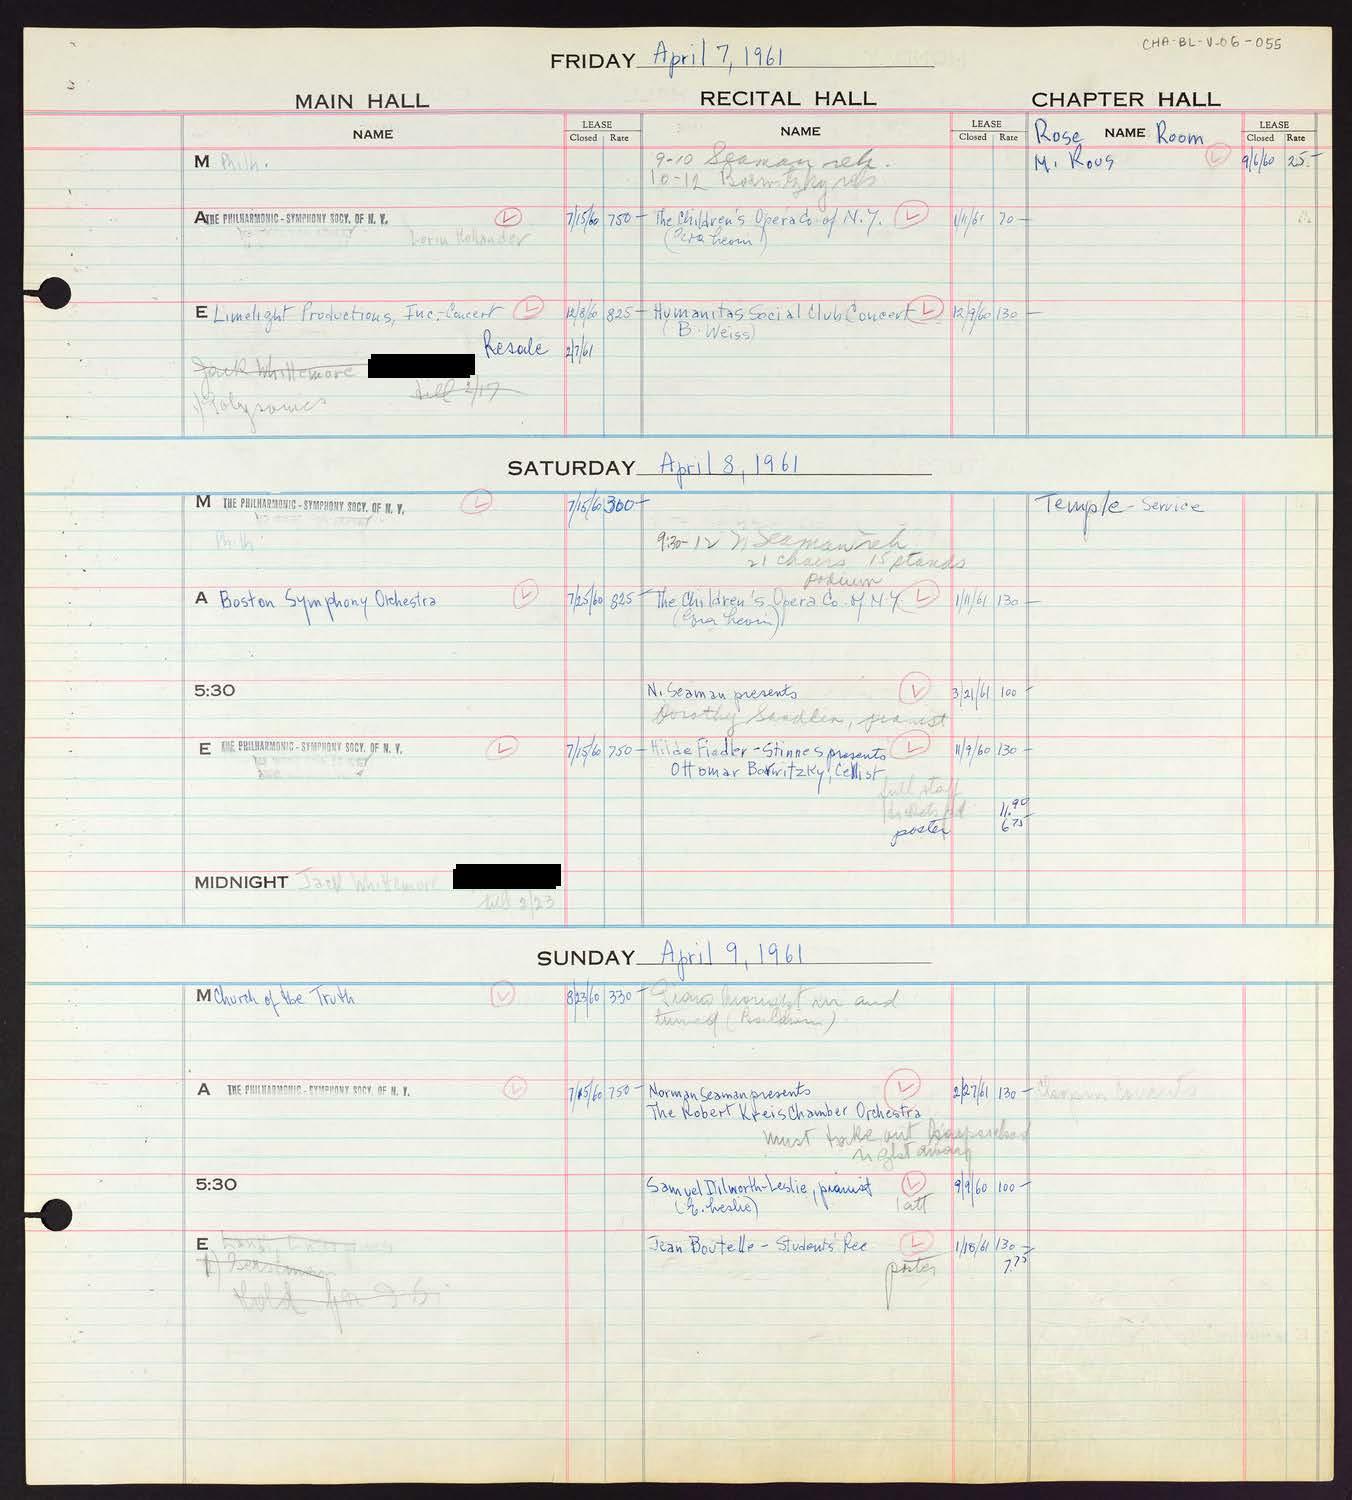 CHA-BL-V-06-055
FRIDAY April 7, 1961
MAIN HALL RECITAL HALL CHAPTER HALL
NAME LEASE Closed Rate NAME LEASE Closed Rate Rose NAME Room LEASE Closed Rate
M Phil. 9-10 Seaman reh. M. Rous L 9/6/60 25.-
10-12 Borwitzky reh
A THE PHILHARMONIC-SYMPHONY SOCY. OF N. Y. L 7/15/60 750- The Children's Opera Co. of N.Y. L 1/11/61 70-
Lorin Hollander
E Limelight Productions, Inc.-Concert L 12/8/60 825- Humanitas Social Club Concert L 12/9/60 130-
(B. Weiss)
Resale 2/7/61
Jack Whittemore
till 2/17
SATURDAY April 8, 1961
M THE PHILHARMONIC-SYMPHONY SOCY. OF N. Y. L 7/15/60 300- Temple-Service
Phil. 9:30-12 N Seaman reh
21 chairs 15 stands
podium
A Boston Symphony Orchestra L 7/25/60 825- The Children's Opera Co. of N.Y. L 1/11/61 130-
5:30 N. Seaman presents L 3/21/61 100-
Dorothy Sandlin, pianist
E THE PHILHARMONIC-SYMPHONY SOCY. OF N. Y. L 7/15/60 750- Hilde Fiedler-Stinnes presents L 11/9/60 130-
Ottomar Borwitzky, Cellist
full staff
11.90
poster 6.75
MIDNIGHT Jack Whittemore
till 2/23
SUNDAY April 9, 1961
M Church of the Truth L 8/23/60 330- Piano brought in and
tuned (Baldwin)
A THE PHILHARMONIC-SYMPHONY SOCY. OF N. Y. L 7/15/60 750- Norman Seaman presents L 2/27/61 130-
The Robert Kreis Chamber Orchestra
must take out harpsichord
right away
5:30 Samuel Dilworth-Leslie, pianist L 9/9/60 100-
(E. Leslie) 1 att
E Jean Boutelle - Students' Rec L 1/18/61 130-
poster 7.75
hold for